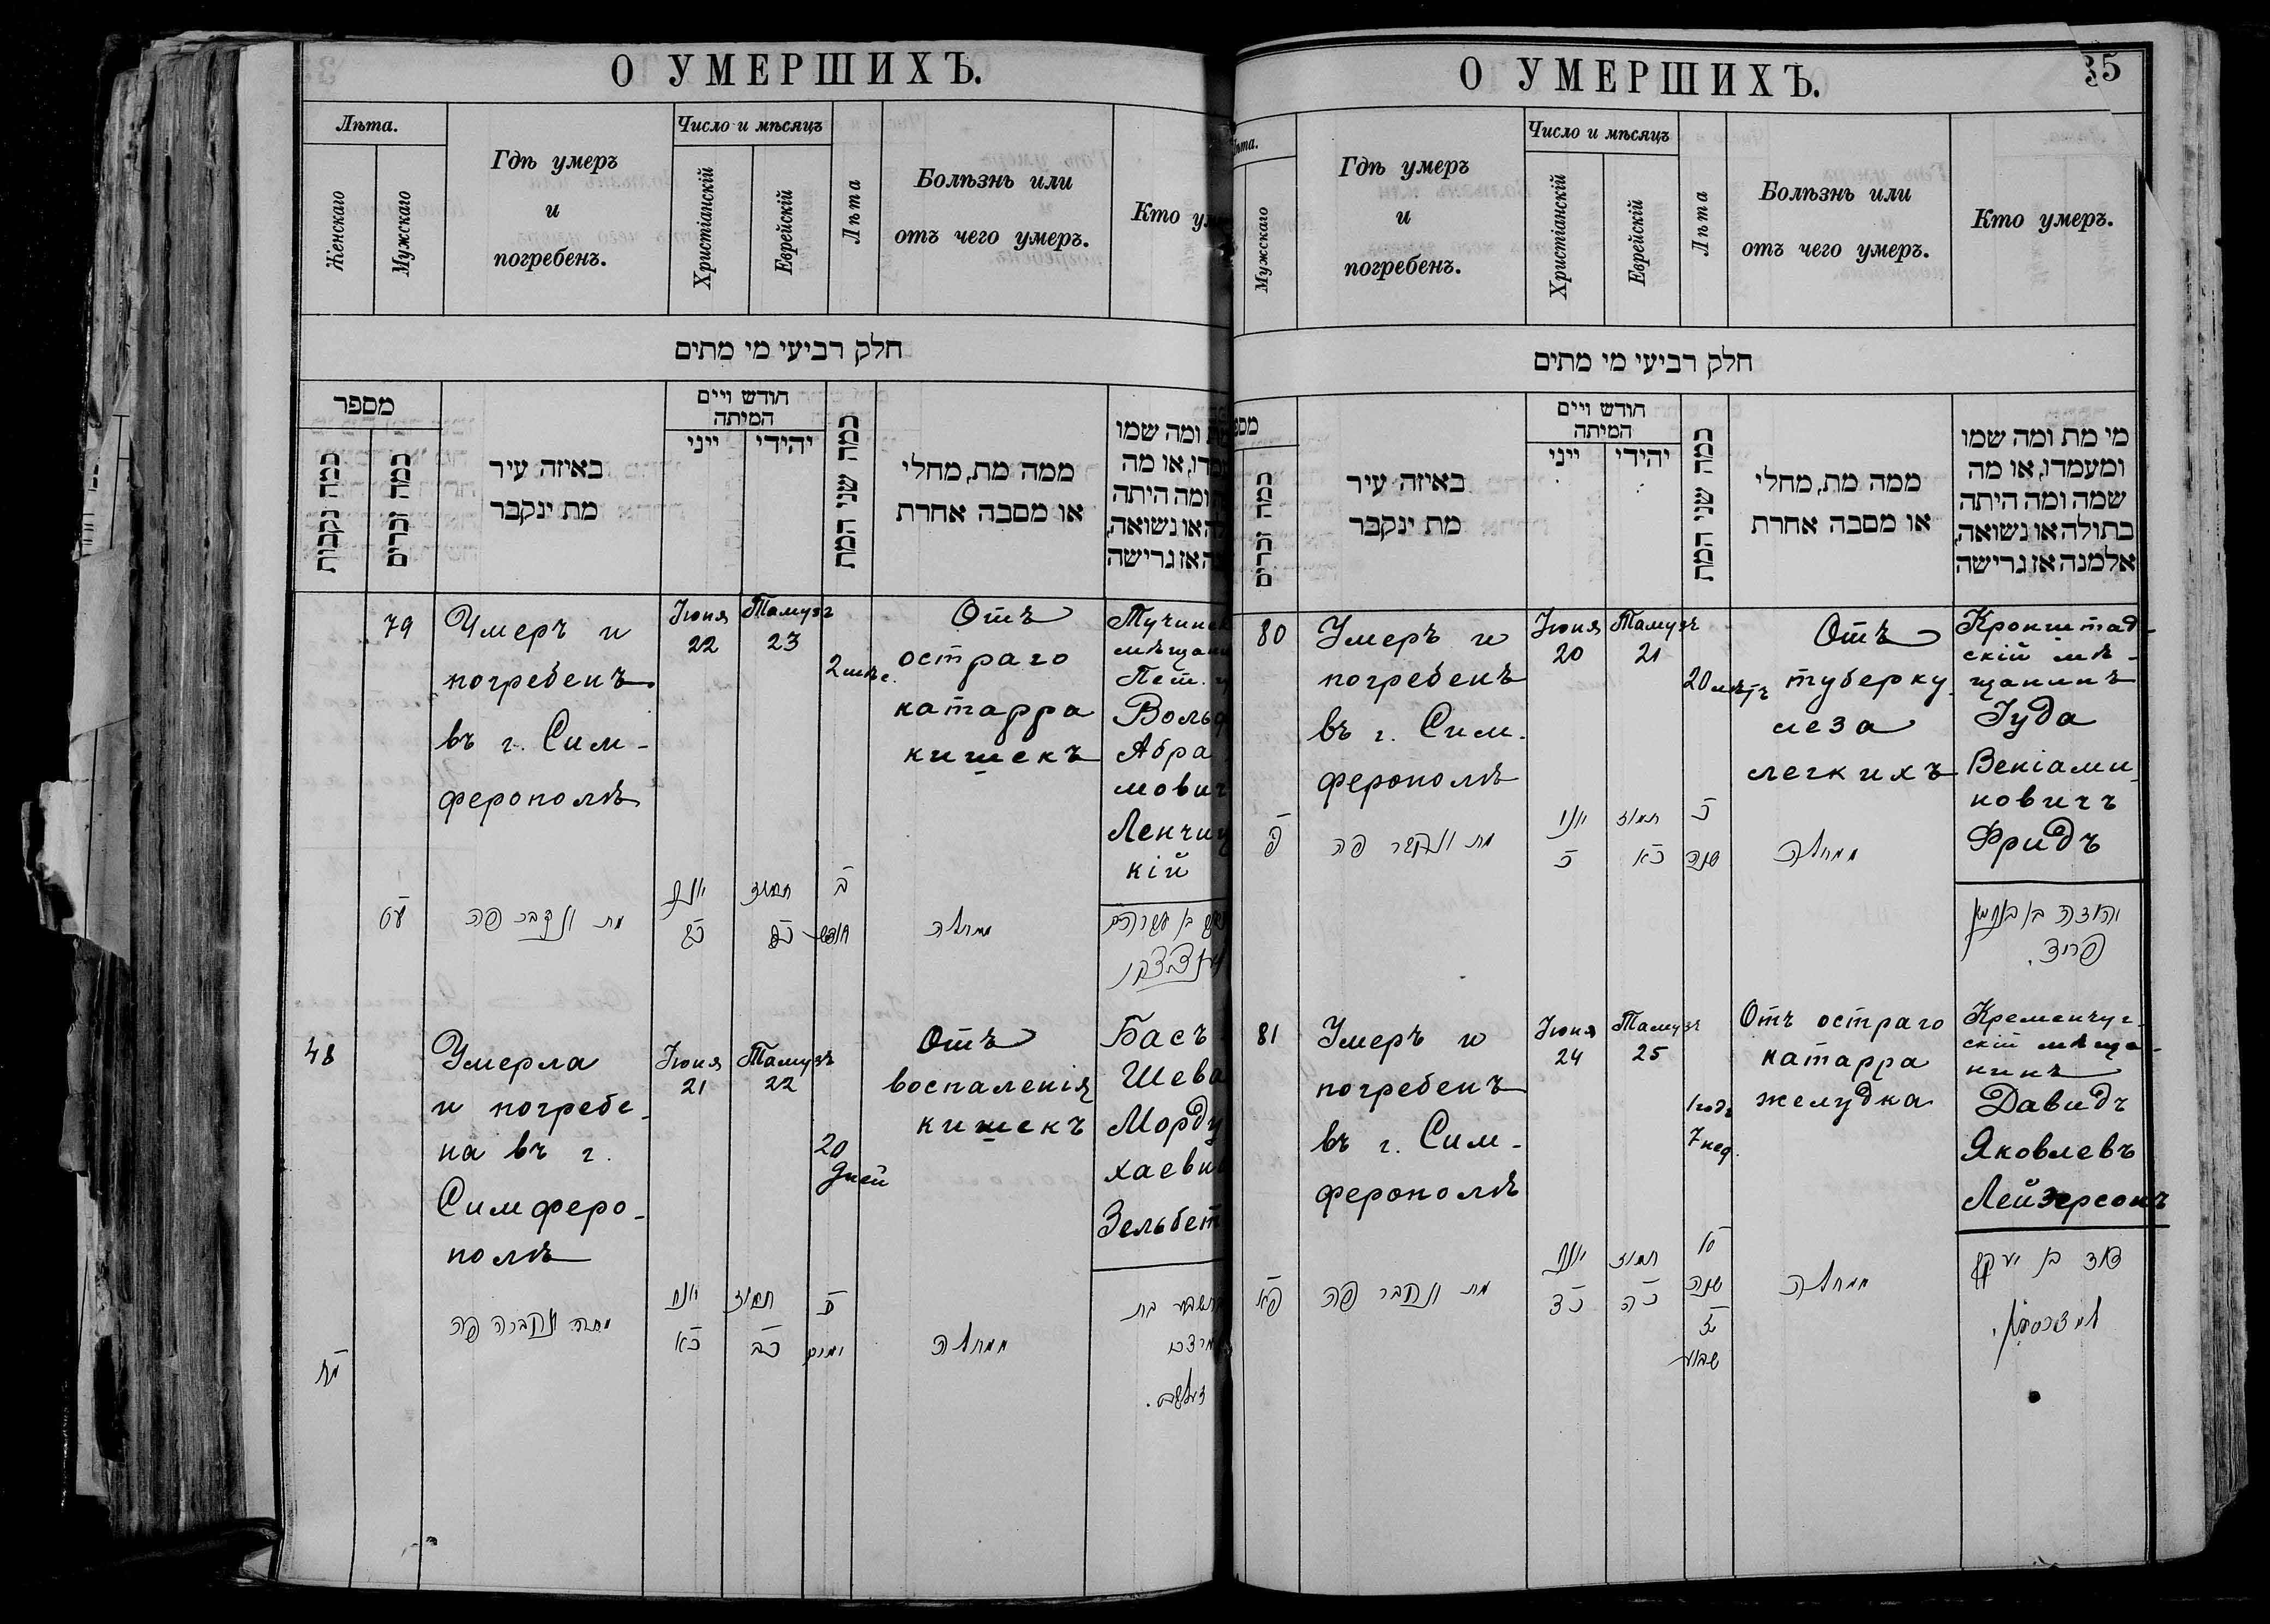 О УМЕРШИХЪ.
Лѣта.
Женскаго
Мужскаго
Гдѣ умеръ
и
погребенъ.
Число и мѣсяцъ
Христіанскій
Еврейскій
Лѣта
Болѣзнь или
отъ чего умеръ.
Кто
חלק רביעי מי מתים
מספר
כמה נקבות
כמה זכרים
באיזה עיר
מת ינקבר
חודש ויים
המיתה
ייני
יהידי
כמה שני המת
ממה מת, מחלי
או מסבה אחרת
ומה שמו
או מה
ומה היתה
או נשואה,
אז גרישה
79
Умеръ и
погребенъ
въ г. Сим-
ферополѣ
Іюня
22
Тамузъ
23
2 мѣс.
Отъ
остраго
катарра
кишекъ
Вольф
Абра
мович
Ленчиц
кій
עט
מת ונקבר פה
יוני
כב
תמוז
כג
ב
חודש
ממחלה
48
Умерла
и погребе-
на въ г.
Симферо-
полѣ
Іюня
21
Тамузъ
22
20
дней
Отъ
воспаленія
кишекъ
Басъ
Шева
Морду
хаевн
Зельбет
מח
מתה ונקברה פה
יוני
כא
תמוז
כב
כ
ימים
ממחלה
בת
О УМЕРШИХЪ.
35
Мужскаго
Гдѣ умеръ
и
погребенъ.
Число и мѣсяцъ
Христіанскій
Еврейскій
Лѣта
Болѣзнь или
отъ чего умеръ.
Кто умеръ.
חלק רביעי מי מתים
כמה זכרים
באיזה עיר
מת ינקבר
חודש ויים
המיתה
ייני
יהידי
כמה שני המת
ממה מת, מחלי
או מסבה אחרת
מי מת ומה שמו
ומעמדו, או מה
שמה ומה היתה
בתולה או נשואה,
אלמנה אז גרישה
80
Умеръ и
погребенъ
въ г. Сим-
ферополѣ
Іюня
20
Тамузъ
21
20 лѣтъ
Отъ
туберку
леза
легкихъ
Кронштад-
скій мѣ-
щанинъ
Іуда
Веніами-
новичъ
Фридъ
פ
מת ונקבר פה
יוני
כ
תמוז
כא
כ
שנה
ממחלה
יהודה בן בנימין
פריד.
81
Умеръ и
погребенъ
въ г. Сим-
ферополѣ
Іюня
24
Тамузъ
25
1 годъ
7 нед.
Отъ остраго
катарра
желудка
Кременчуг-
скій мѣща-
нинъ
Давидъ
Яковлевъ
Лейзерсонъ
פא
מת ונקבר פה
יוני
כד
תמוז
כה
שנה
ז
שבוע
ממחלה
דוד בן יעקב
לייזרסאן.